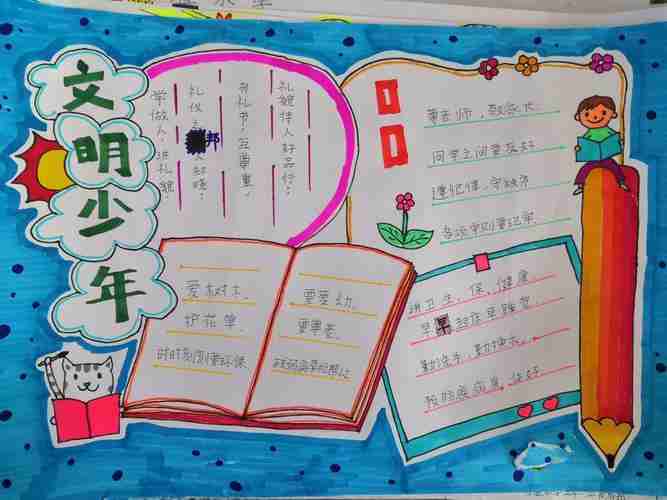 文明少年
学做人,讲礼貌,
礼仪之邦人知晓。
书礼节,互尊重,
礼貌待人好品行。
尊老师,敬家长,
同学之间要友好
遵纪律,守秩序
各项守则要记牢。
爱树木,
护花草,
时时刻刻要环保
要爱幼,
要尊老,
讲卫生,保健康,
早起床早锻炼
勤洗手,勤
预防疾病身体好